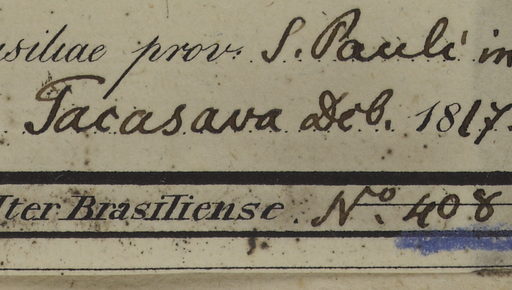 siliae prov. S. Pauli in
Tacasava Deb. 1817.
Iter Brasiliense. No. 408